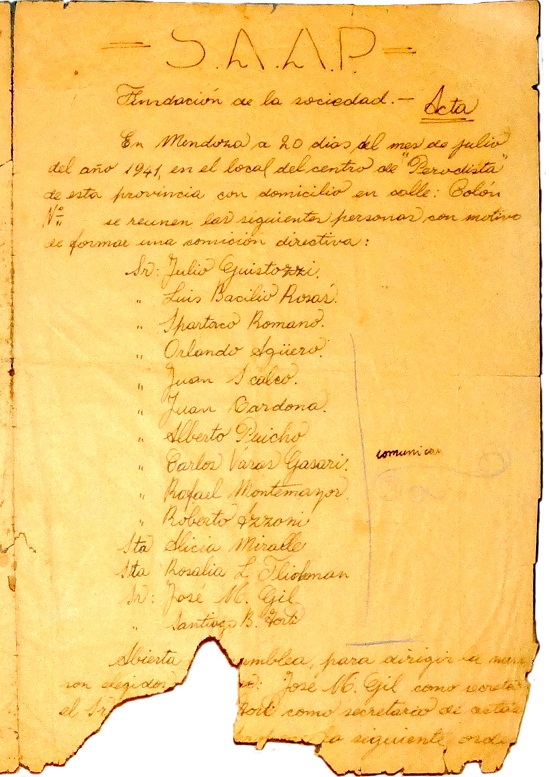 = S.A.A.P. =
Fundación de la sociedad. — Acta
En Mendoza a 20 dias del mes de julio
del año 1941, en el local del centro de "Periodista"
de esta provincia con domicilio en calle: Colón
Nº se reunen las siguientes personas con motivo
de formar una comición directiva:
Sr: Julio Guistozzi.
" Luis Bacilio Rosas.
" Spartaco Romano.
" Orlando Agüero.
" Juan Scalco.
" Juan Cardona.
" Alberto
" Carlos Varas Gasari.
comunicar
" Rafael Montemayor.
" Roberto Azzoni
Sta Alicia Miralle
Sta Rosalia L. Flichman
Sr: José M. Gil
" Santiago B. Forti
Abierta amblea, para dirigir la
son elegidos José M. Gil como
el Sr Forti como secretario de actas
la siguiente orden